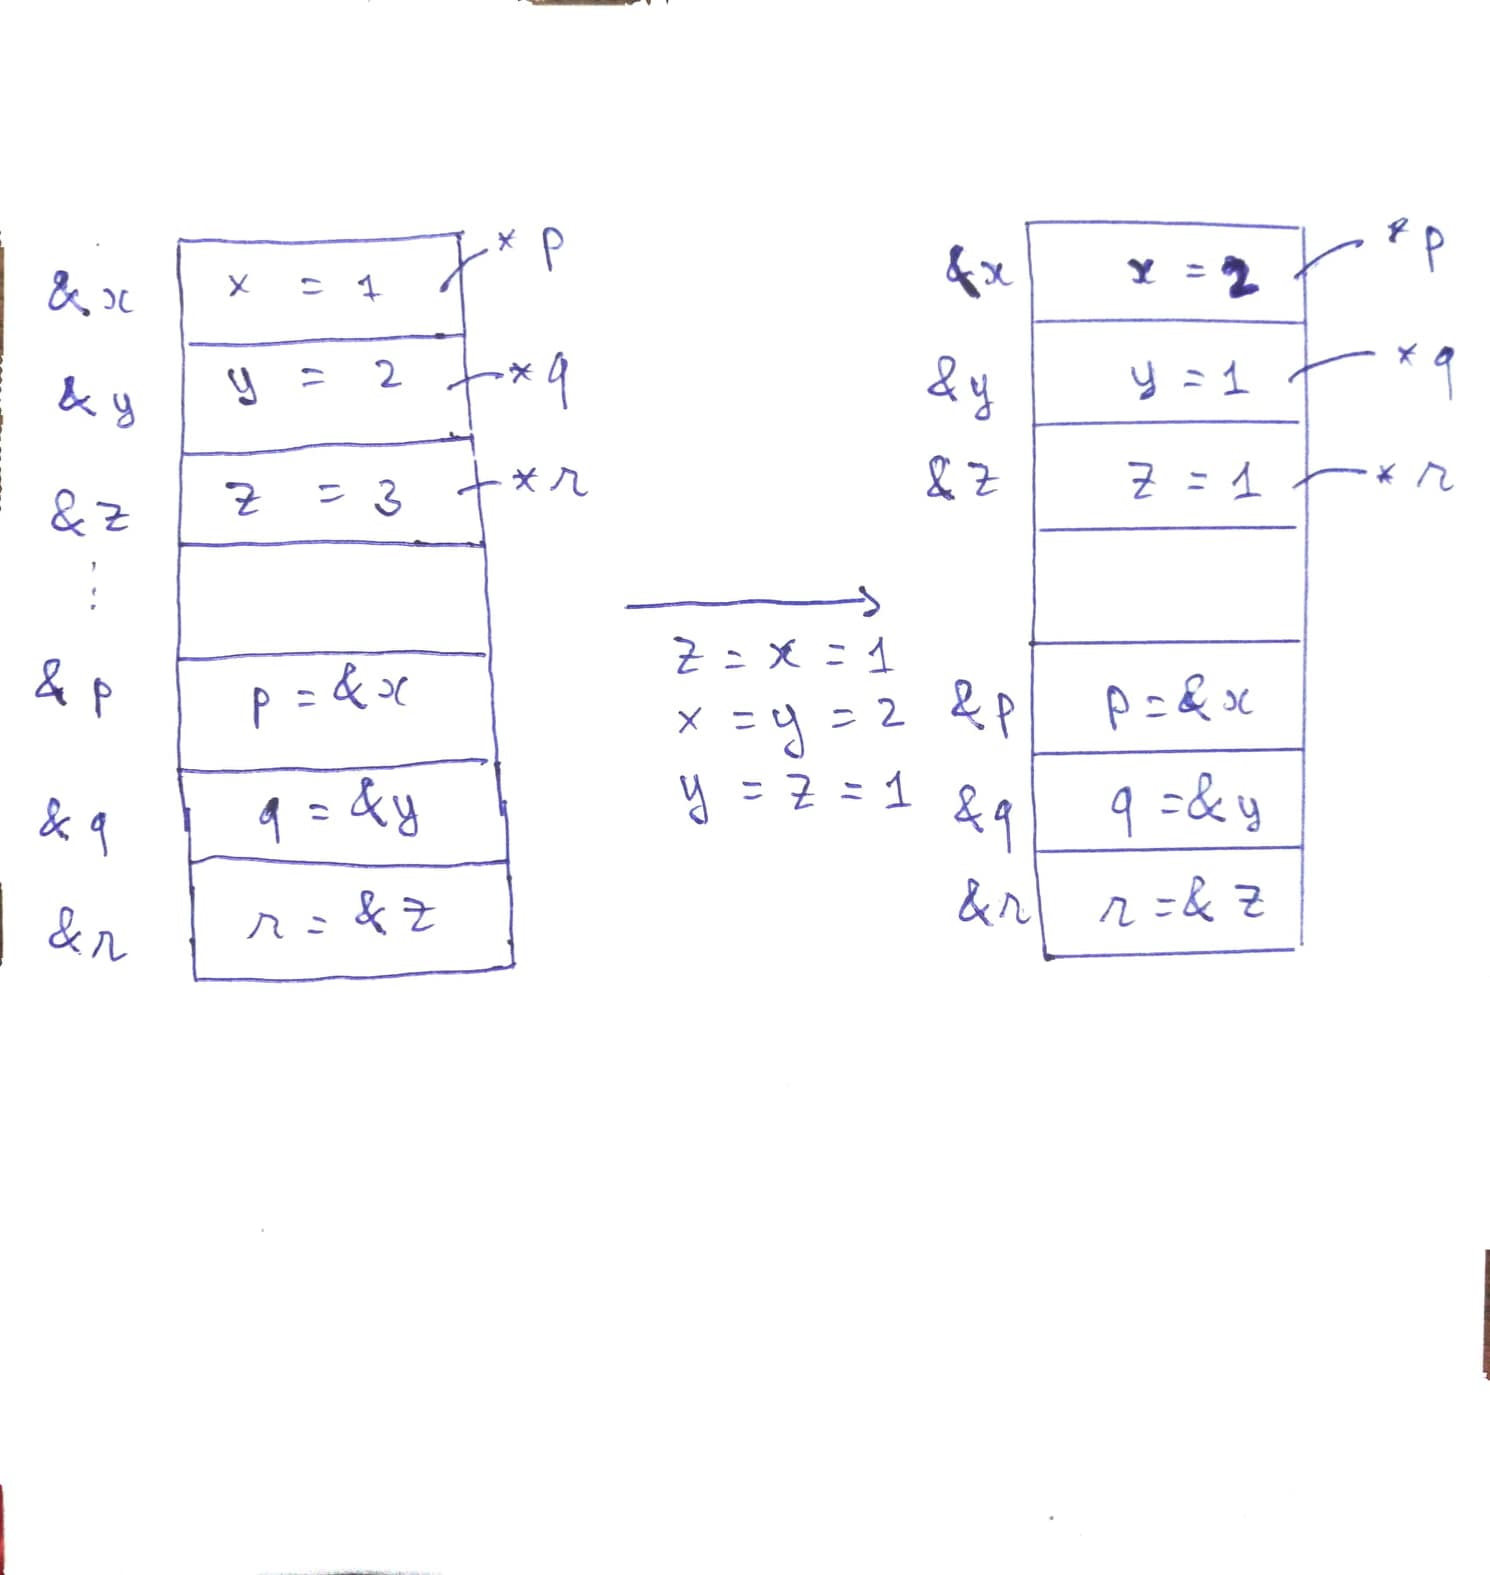 * p
&x x = 1
&y y = 2 * q
&z z = 3 * r
⋮
&p p = &x
&q q = &y
&r r = &z
z = x = 1
x = y = 2
y = z = 1
* p
&x x = 2
&y y = 1 * q
&z z = 1 * r
&p p = &x
&q q = &y
&r r = &z